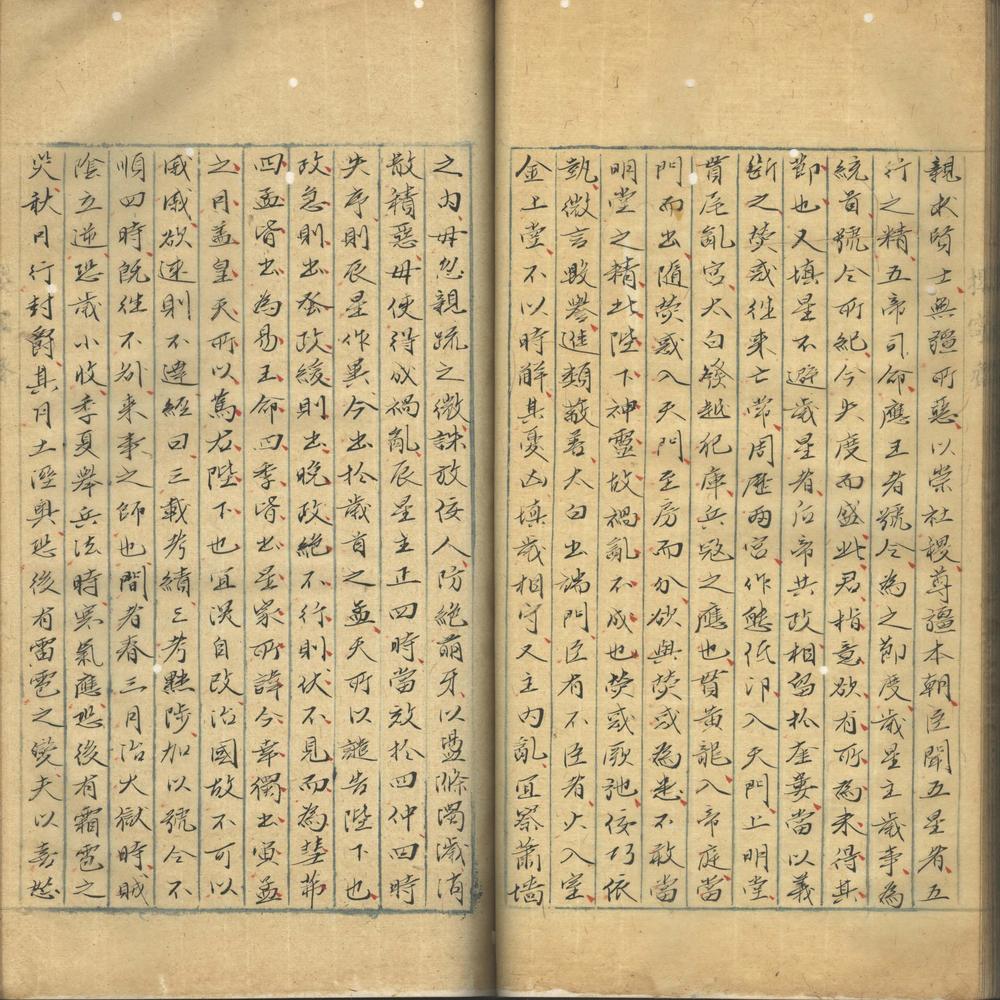 親求賢士無彊所惡以崇社稷尊彊本朝臣聞五星者五
行之精五帝司命應王者號令為之節度歲星主歲事為
統首號令所紀今失度而盛此君指意欲有所為未得其
節也又填星不避歲星者后帝共政相留於奎婁當以義
斷之熒惑往來亡常周歷兩宮作態低卬入天門上明堂
貫尾亂宮太白發越犯庫兵寇之應也貫黃龍入帝庭當
門而出隨熒惑入天門至房而分欲與熒惑為患不敢當
明堂之精此陛下神靈故禍亂不成也熒惑厥弛佞巧依
勢微言毀譽進類蔽善太白出端門臣有不臣者火入室
金上堂不以時解其憂凶填歲相守又主內亂宜察蕭墻
之內毋忽親疏之微誅放佞人防絕萌牙以盪滌濁濊消
散積惡毋使得成禍亂辰星主正四時當效於四仲四時
失序則辰星作異今出於歲首之孟天所以譴告陛下也
政急則出蚤政緩則出晚政絕不行則伏不見而為彗茀
四孟皆出為易王命四季皆出星家所諱今幸獨出寅孟
之月蓋皇天所以篤右陛下也宜深自改治國故不可以
戚戚欲速則不達經曰三載考績三考黜陟加以號令不
順四時既往不咎來事之師也間者春三月治大獄時賊
陰立逆恐歲小收季夏舉兵法時寒氣應恐後有霜雹之
災秋月行封爵其月土溼奧恐後有雷雹之變夫以喜怒